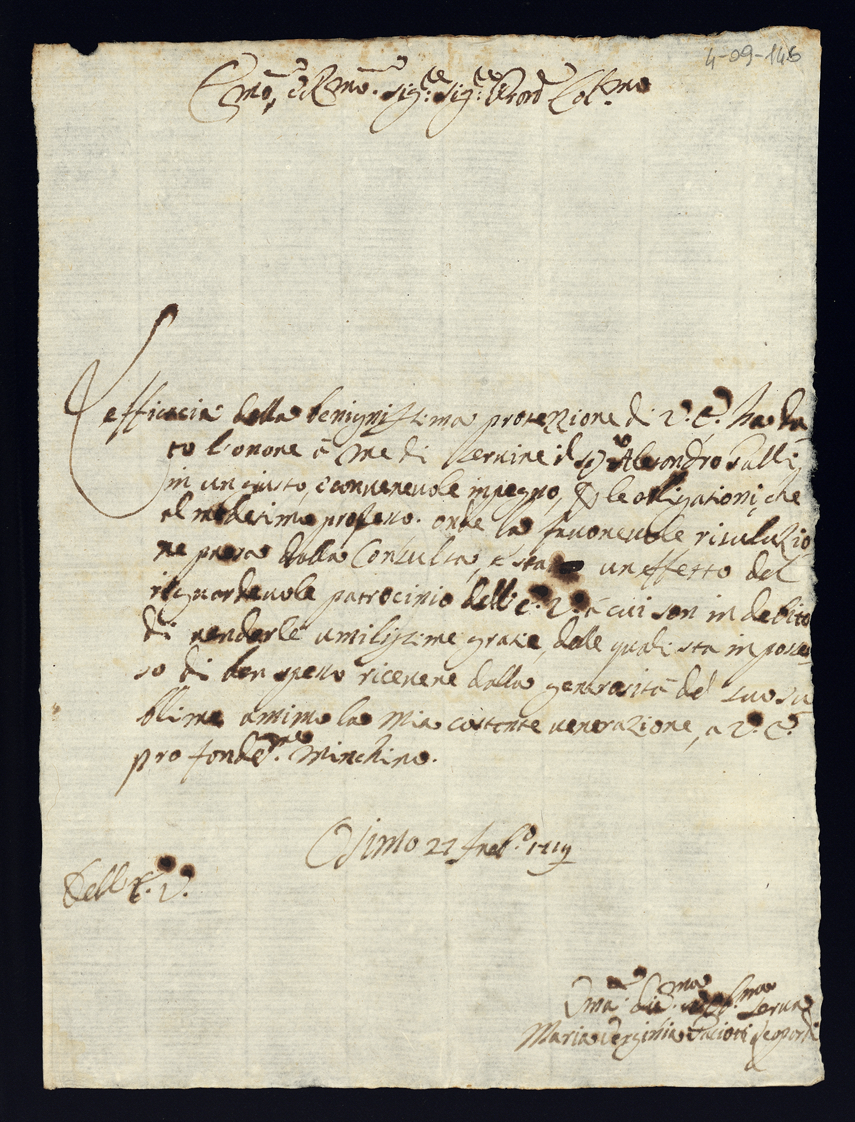 4-09-148
Em̃o, e Rm̃o. Sig.re Sig.re Prõn Col.mo
L'efficacia della benignissima protezione di V. E. ha da
to l'onore à me di servire il Sig.r Alesandro Galli
in un giusto, e convenevole impegno, p le obligationi, che
al medesimo professo. onde la favorevole risoluzio
ne presa dalla Consulta, e stato un effetto del
riguardevole patrocinio dell'E. V. à cui son in debito
di renderle umilissime grazie, dalle quali sta in posses
so di ben spesso ricevere dalla generosità del suo su
blime animo la mia costante venerazione, a V. E.
profondam.te m'inchino.
Osimo 22 Feb.o
Dell'E. V.
Vma. Div.ma Obb.ma serva
Maria Verginia Leopardi